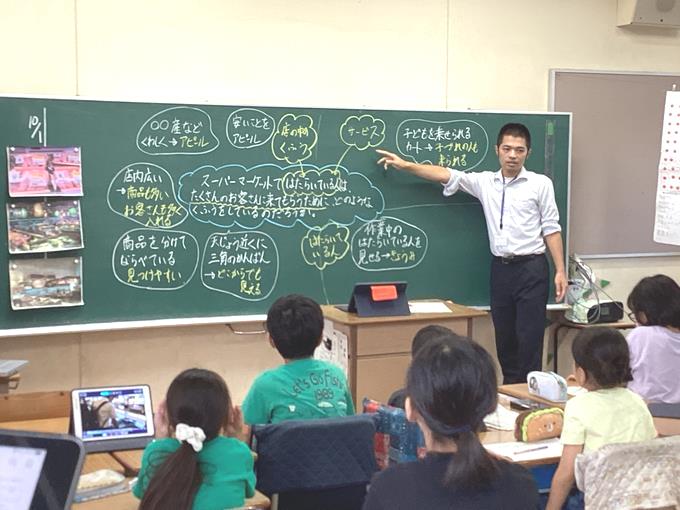 10/1
〇〇産など
くわしく→アピール
安いことを
アピール
店の中
くふう
サービス
子どもを乗せられる
カート→子づれの人も
来られる
店内広い
→商品も多い
お客さんも多く
入れる
スーパーマーケットで はたらいている人は、
たくさんのお客さんに来てもらうために、どのような
くふうをしているのだろうか。
商品を分けて
ならべている
見つけやすい
天じょう近くに
三角のかんばん
→どこからでも
見える
はたらいて
いる人
作業中の
はたらいている人を
見せる→
Let's Go Fish
1989